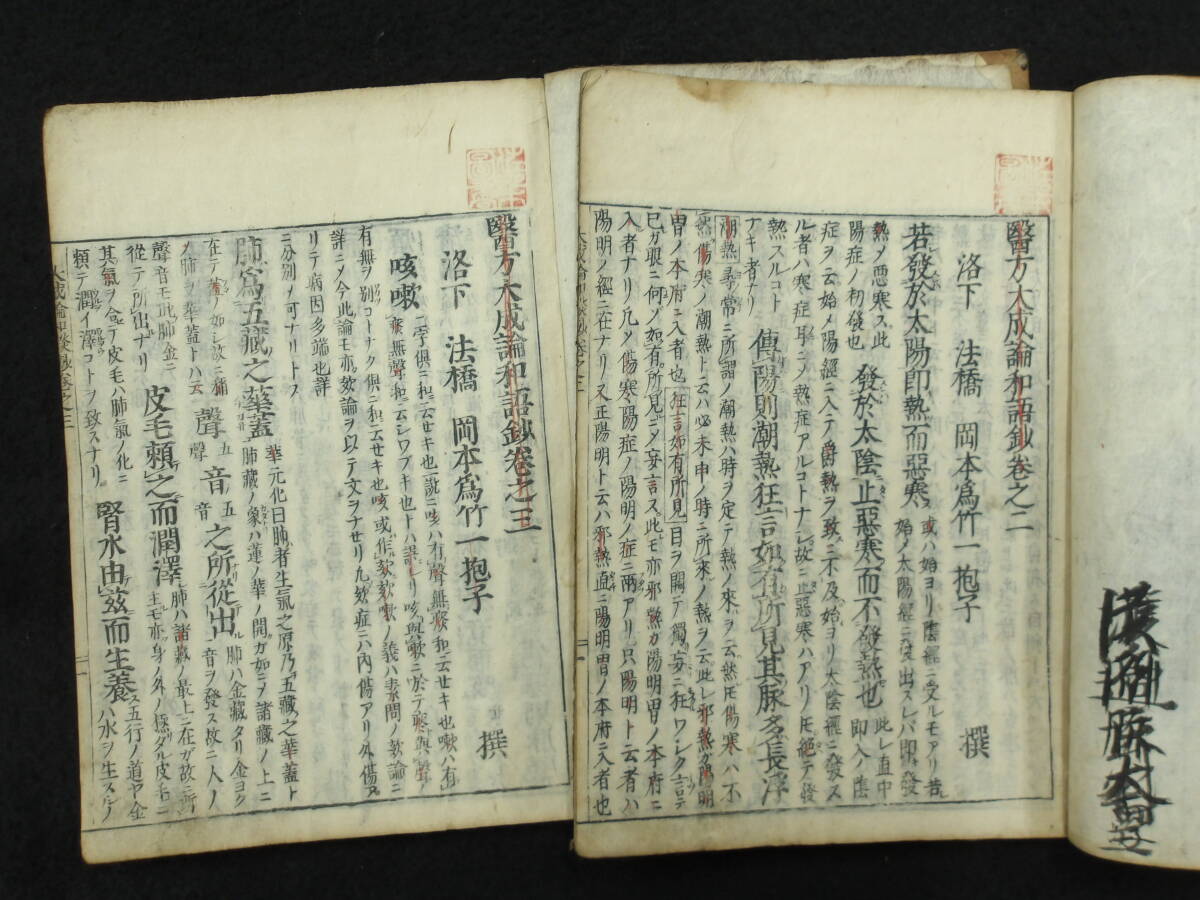 醫方大成論和語鈔卷之二
洛下 法橋 岡本爲竹一抱子 撰
若發於太陽即熱而惡寒 或ハ始ヨリ陰經ニ受ルモアリ若シ始メ太陽經ニ發出スレバ即發
熱メ惡寒ス此 陽症ノ初發也 發於太陰止惡寒而不發熱也 此レ直中 即入ノ陰
症ヲ云始メ陽經ニ入テノ欝熱ヲ致ニ不及始ヨリ太陰經ニ發ス
ル者ハ寒症耳ニメ熱症アルコトナシ故ニ止惡寒ハアリ𪜈絶テ發
熱スルコト ナキ者ナリ 傳陽則潮熱狂言如有所見其脉多長浮
潮熱尋常ニ所謂ノ潮熱ハ時ヲ定テ熱ノ來ヲ云然𪜈傷寒ハ不
然傷寒ノ潮熱ト云ハ必未申ノ時ニ所來ノ熱ヲ云此レ邪熱ガ陽明
胃ノ本府ニ入者也 狂言如有所見 目ヲ開テ獨妄ニ狂ワシク言テ
己ガ眼ニ何ゾ如有所見ニメ妄言ス此モ亦邪熱ガ陽明胃ノ本府ニ
入者ナリ凡メ傷寒陽症ノ陽明ノ症ニ兩アリ只陽明ト云者ハ
陽明ノ經ニ在ナリ又正陽明ト云ハ邪熱直ニ陽明胃ノ本府ニ入者也
醫方大成論和語鈔卷之三
洛下 法橋 岡本爲竹一抱子 撰
咳嗽 二字俱ニ和云セキ也説ニ咳ハ有聲無痰和云セキ也嗽ハ有
痰無聲和云シワブキ也トハ誤レリ咳與嗽ニ於テ痰與聲ノ
有無ヲ別コトナク俱ニ和云セキ也咳或作欬欬嗽ノ義ハ素問ノ欬論ニ
詳ニメ今此論モ亦欬論ヲ以テ文ヲナセリ凡欬症ニハ内傷アリ外傷ア
リテ病因多端也詳ニ分別メ可ナリトス
肺爲五藏之華蓋 華元化曰肺者生氣之原乃五藏之華蓋ト
肺藏ノ象ハ蓮ノ華ノ開ガ如ニメ諸藏ノ上ニ
在テ蓋ノ如シ故ニ稱メ肺ヲ華蓋ト云 聲 五聲 音 五音 之所從出 肺ハ金藏タリ金ヨク音ヲ發ス故ニ人ノ
聲音モ此肺金ニ從テ所出ナリ 皮毛頼之而潤澤 肺ハ諸藏ノ最上ニ在ガ故ニ所主モ亦身ノ外ノ標タル皮毛ニ
其氣ヲ合テ皮毛ハ肺氣ノ化ニ頼テ潤イ澤コトヲ致スナリ 腎水由茲而生養 五行ノ道ヤ金ハ水ヲ生スルノ
大成論和語鈔卷之二
大成論和語鈔卷之三